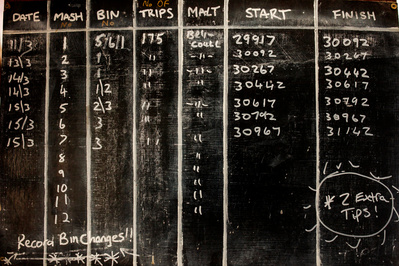 No OF
DATE MASH BIN TRIPS MALT START FINISH
11/3 1 5/6/1 175 Bell- 29917 30092
court
13/3 2 1 " -"- 30092 30267
14/3 3 1 " -"- 30267 30442
14/3 4 1\2 " " 30442 30617
15/3 5 2\3 " -"- 30617 30792
15/3 6 3 " " 30792 30967
15/3 7 3 " " 30967 31142
8 "
9 "
10 "
11 "
12 "
* 2 Extra
Tips!
Record Bin Changes!!